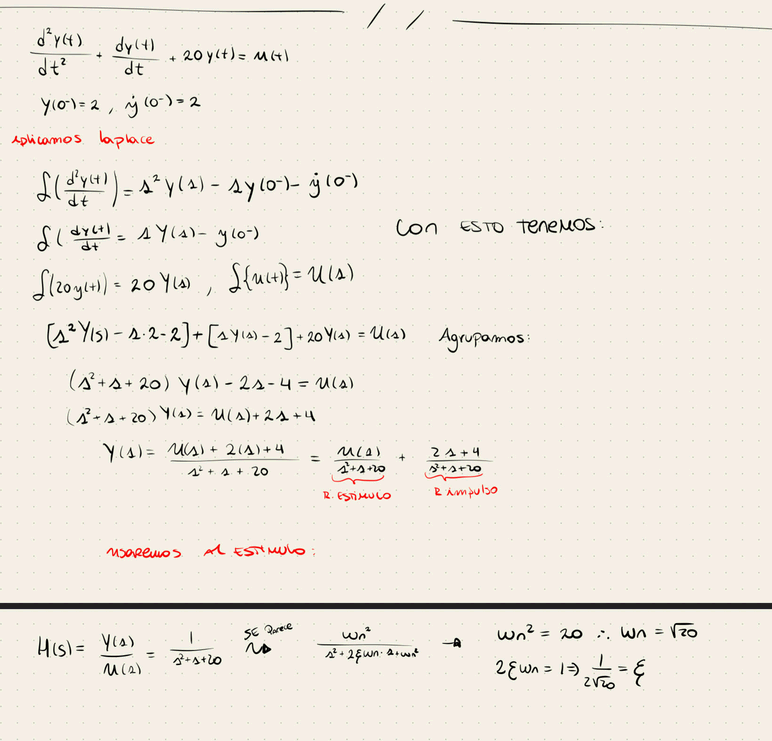 d²y(t)/dt² + dy(t)/dt + 20y(t) = u(t)
y(0⁻)=2 , ẏ(0⁻)=2
Aplicamos laplace
ℒ(d²y(t)/dt) = s² Y(s) - s y(0⁻) - ẏ(0⁻)
ℒ(dy(t)/dt = s Y(s) - y(0⁻)
Con ESTO TENEMOS:
ℒ(20y(t)) = 20 Y(s) , ℒ{u(t)} = U(s)
[s² Y(s) - s·2-2] + [s Y(s) - 2] + 20 Y(s) = U(s) Agrupamos:
(s²+s+20) Y(s) - 2s - 4 = U(s)
(s²+s+20) Y(s) = U(s)+2s+4
Y(s) = (U(s) + 2(s)+4)/(s² + s + 20) = U(s)/(s²+s+20) + (2s+4)/(s²+s+20)
R. ESTIMULO R impulso
usaremos Al ESTIMULO:
H(s) = Y(s)/U(s) = 1/(s²+s+20) SE Parece ↝ wn²/(s²+2ξwn·s+wn²) → wn² = 20 ∴ wn = √20
2ξwn = 1 ⇒ 1/(2√20) = ξ